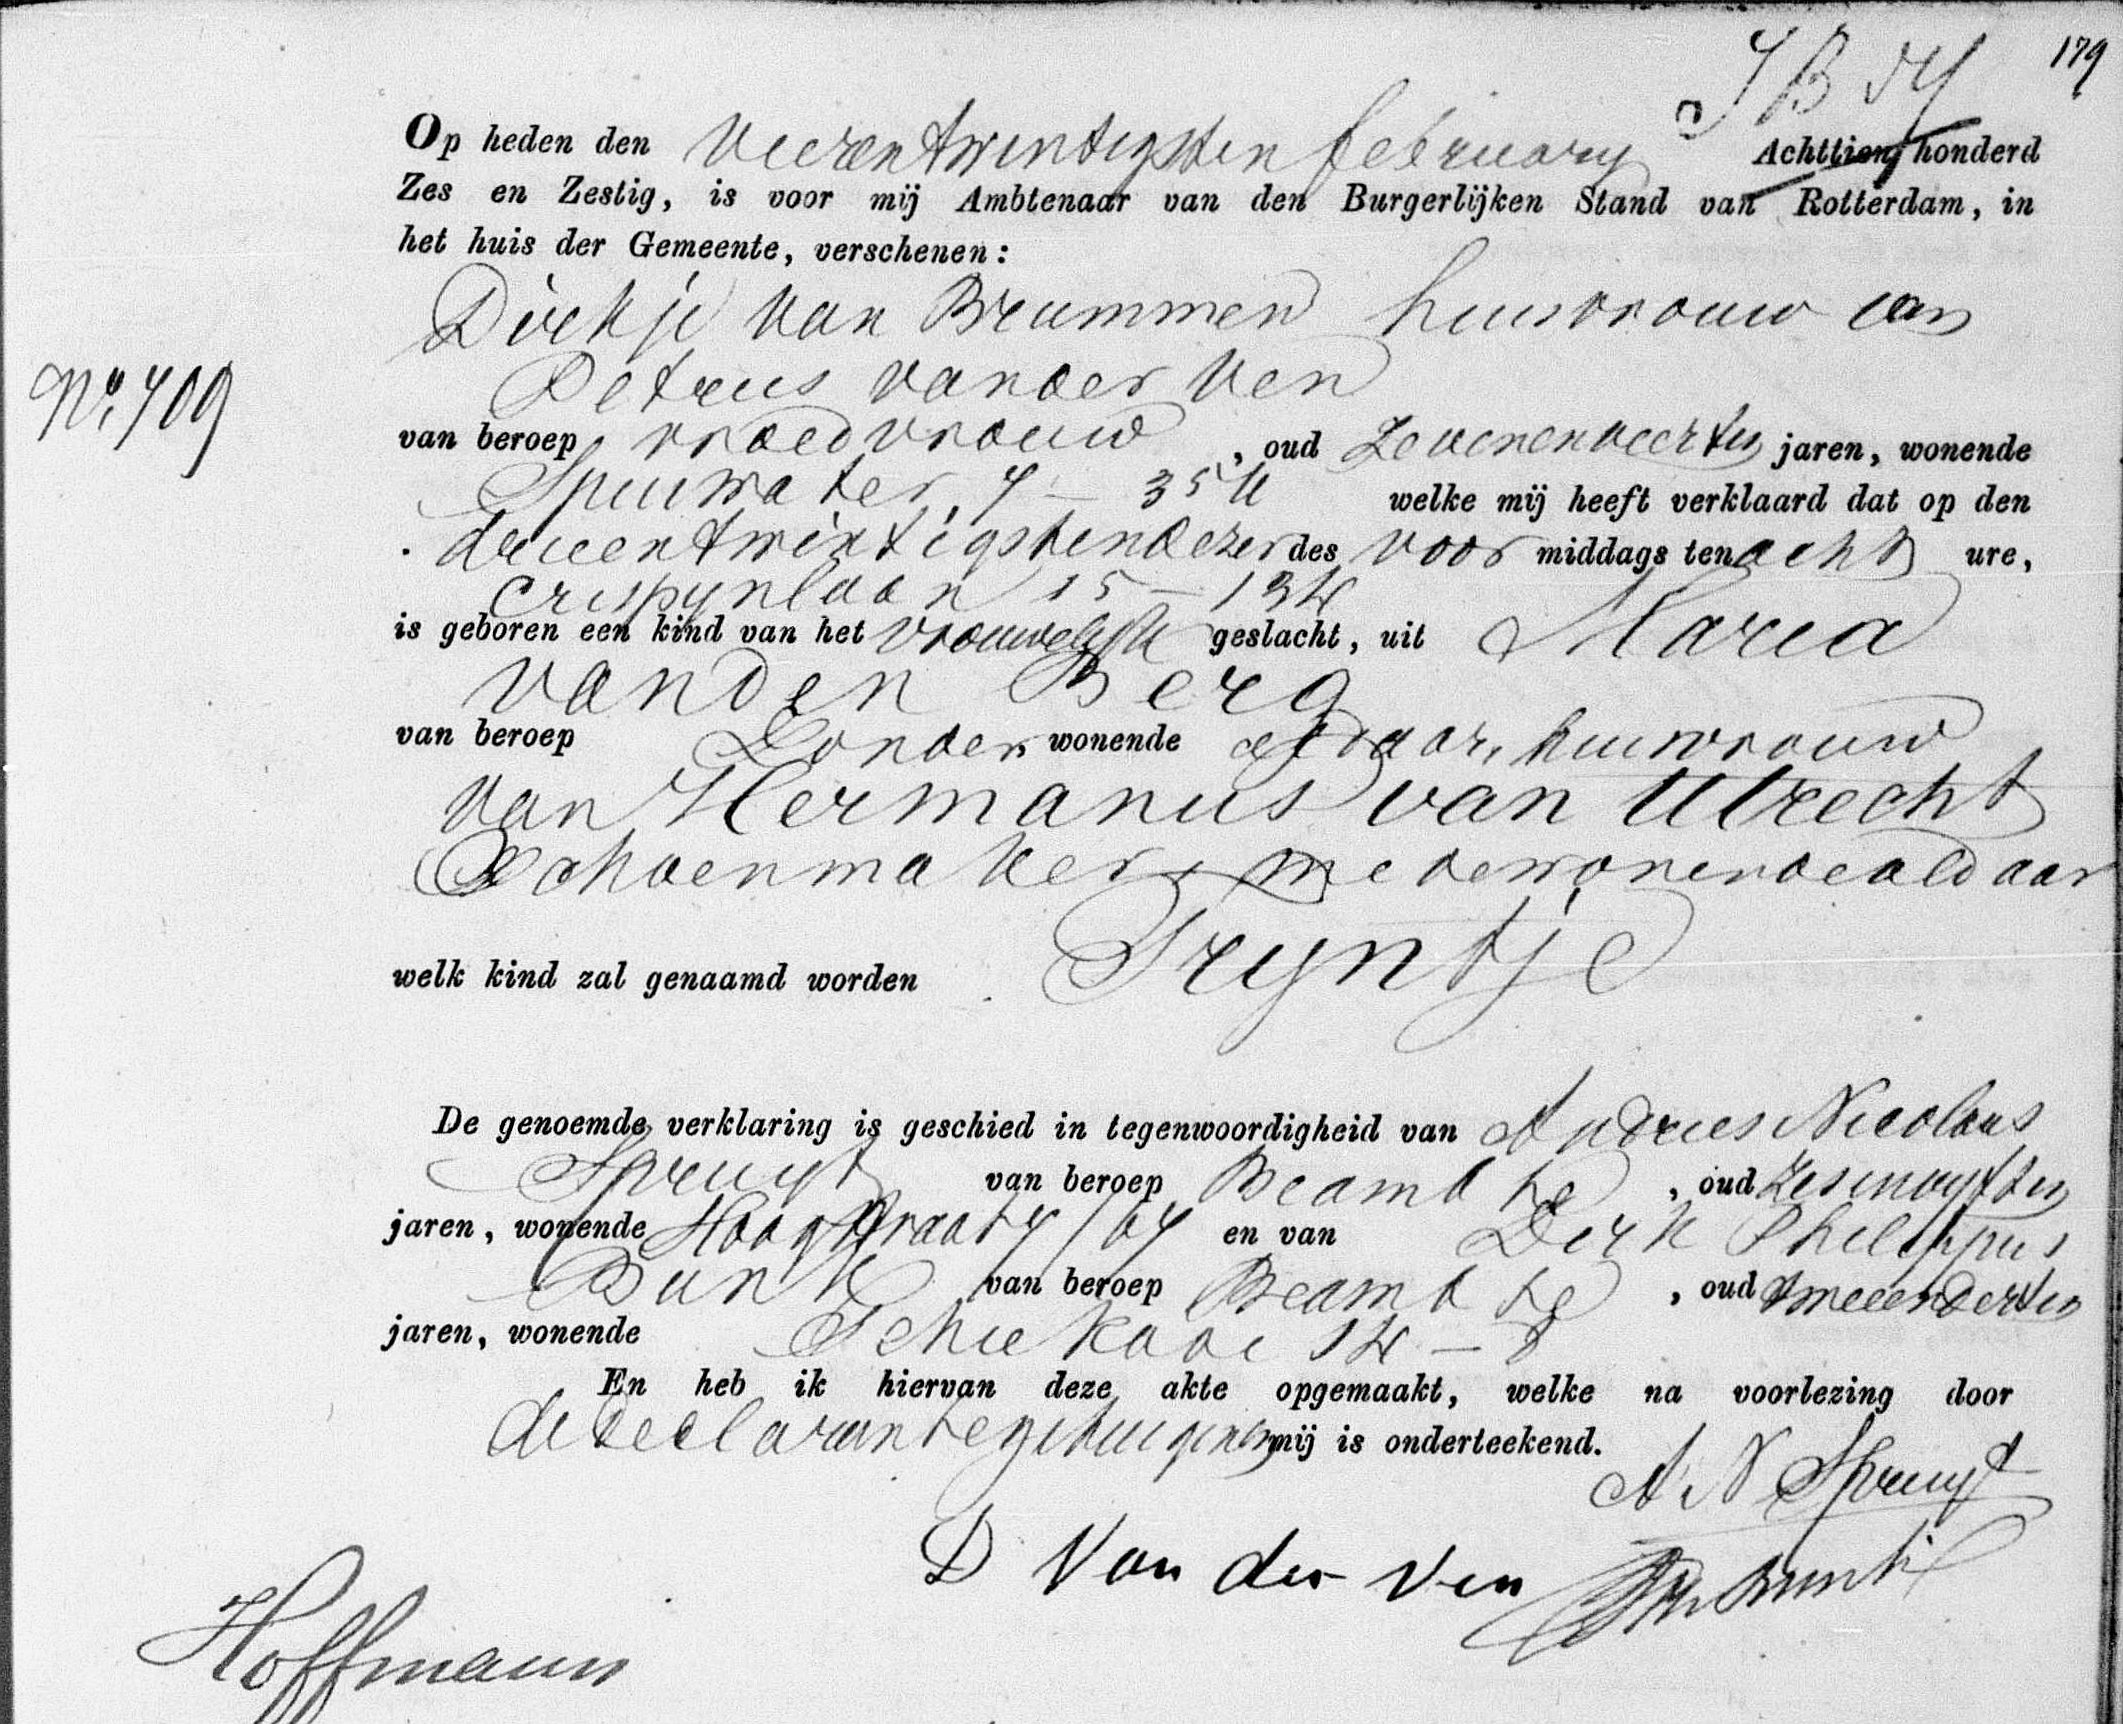 179
Op heden den Vierentwintigsten february Achttien honderd
Zes en Zestig, is voor mij Ambtenaar van den Burgerlijken Stand van Rotterdam, in
het huis der Gemeente, verschenen:
Dirkje van Brummen huisvrouw van
Petrus van der Ven
No. 709
van beroep vroedvrouw, oud Zevenenveertig jaren, wonende
Spuiwater, 7 – 354 welke mij heeft verklaard dat op den
drieentwintigsten dezer des voor middags ten acht ure,
Crispynlaan 15 – 134
is geboren een kind van het vrouwelijk geslacht, uit Maria
van den Berg
van beroep Zonder wonende aldaar, huisvrouw
van Hermanus van Utrecht
Schoenmaker, mede wonende aldaar
welk kind zal genaamd worden Tryntje
De genoemde verklaring is geschied in tegenwoordigheid van Andries Nicolaas
Spruyt van beroep Beambte, oud zesenvyftig
jaren, wonende Hoogstraat 7/67 en van Dirk Philippus
Bunk van beroep Beambte, oud tweeendertig
jaren, wonende Schiekade 14 – 8
En heb ik hiervan deze akte opgemaakt, welke na voorlezing door
de declarante getuigen en mij is onderteekend.
A N Spruyt
D Van der Ven
Hoffmann